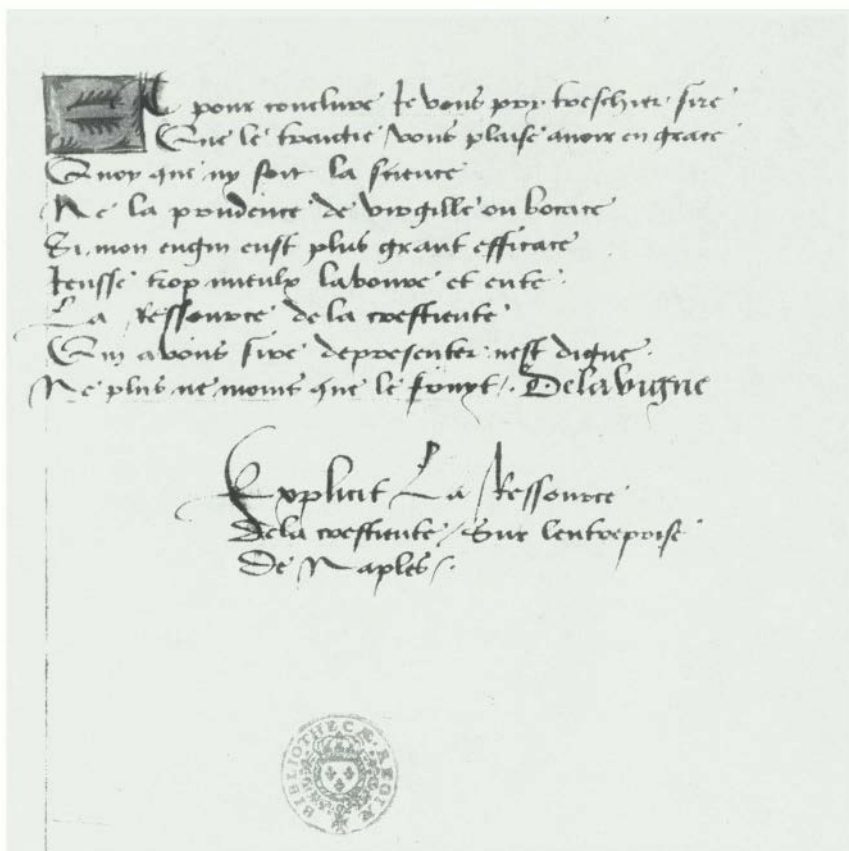 Et pour conclure Je vous pry treschier sire
Que le traictie vous plaise avoir en grace
Quoy que ny soit la science
Ne la prudence de virgille ou bocace
Si mon engin eust plus grant efficace
Jeusse trop mieulx laboure et ente
La Ressource de la crestiente
Qui a vous sire depresenter nest digne
Ne plus ne moins que le fruyt . Delavigne
Explicit La Ressource
dela crestiente / Sur lentreprise
De Naples / .
BIBLIOTHECÆ REGIÆ